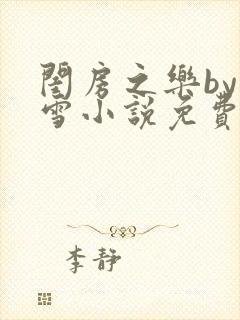 閨房之樂by
雪小説免費
李靜